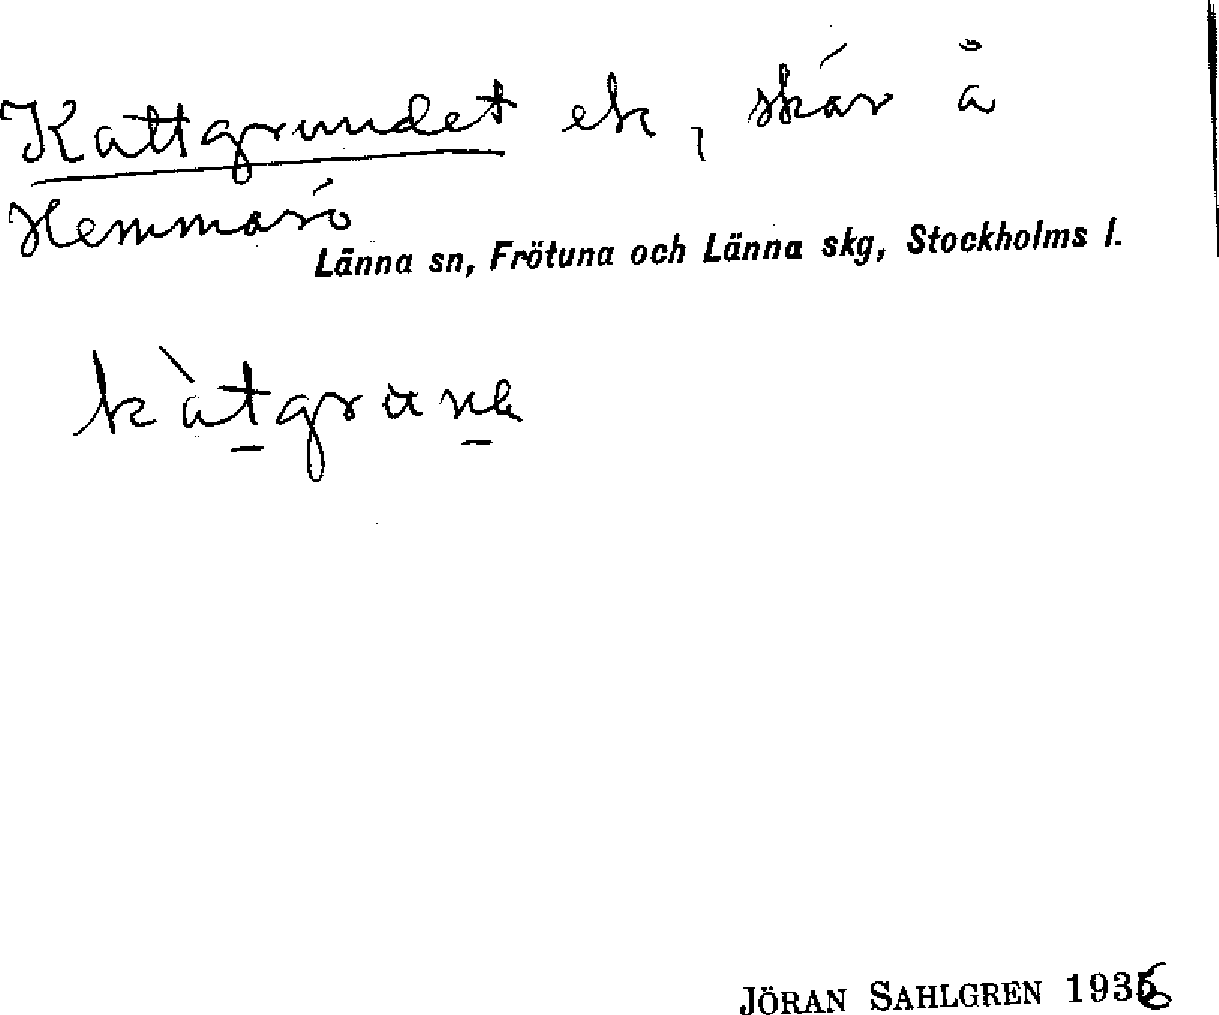 Kattgrundet ek, skär å
Hemmarö
Länna sn, Frötuna och Länna skg, Stockholms l.
JÖRAN SAHLGREN 1936